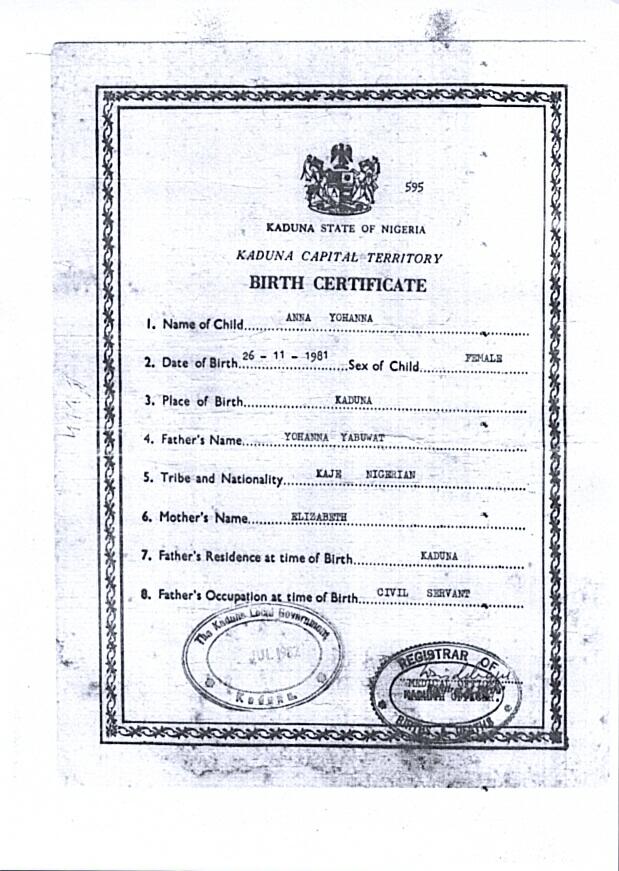 595
KADUNA STATE OF NIGERIA
KADUNA CAPITAL TERRITORY
BIRTH CERTIFICATE
1. Name of Child ANNA YOHANNA
2. Date of Birth 26 - 11 - 1981 Sex of Child FEMALE
3. Place of Birth KADUNA
4. Father's Name YOHANNA YABUWAT
5. Tribe and Nationality KAJE NIGERIAN
6. Mother's Name ELIZABETH
7. Father's Residence at time of Birth KADUNA
8. Father's Occupation at time of Birth CIVIL SERVANT
The Kaduna Local Government
JUL 1982
Kaduna.
REGISTRAR OF
MEDICAL OFFICER
BIRTHS & DEATHS